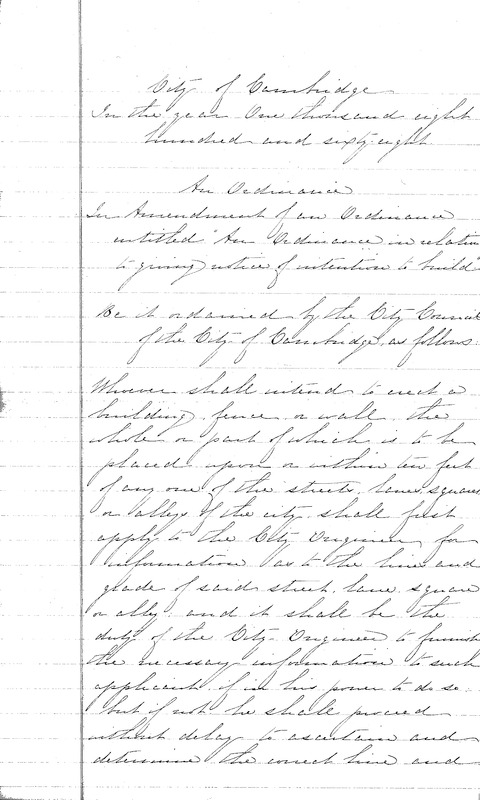 City of Cambridge
In the year One thousand eight
hundred and sixty eight
An Ordinance
In Amendment of an Ordinance
entitled "An Ordinance in relation
to giving notice of intention to build"
Be it ordained by the City Council
of the City of Cambridge, as follows:
Whoever shall intend to erect a
building, fence or wall, the
whole or part of which is to be
placed upon or within ten feet
of any one of the streets, lanes, squares
or alleys of the city shall first
apply to the City Engineer for
information as to the line and
grade of said street, lane, square
or alley, and it shall be the
duty of the City Engineer to furnish
the necessary information to such
applicant if in his power to do so.
but if not he shall proceed
without delay to ascertain and
determine the correct line and